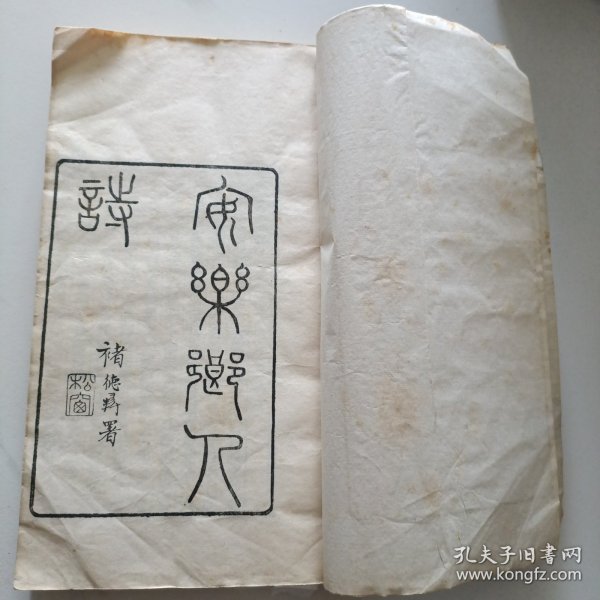 安樂鄉人
詩
褚德彝署
松窗
孔夫子旧书网
www.kongfz.com